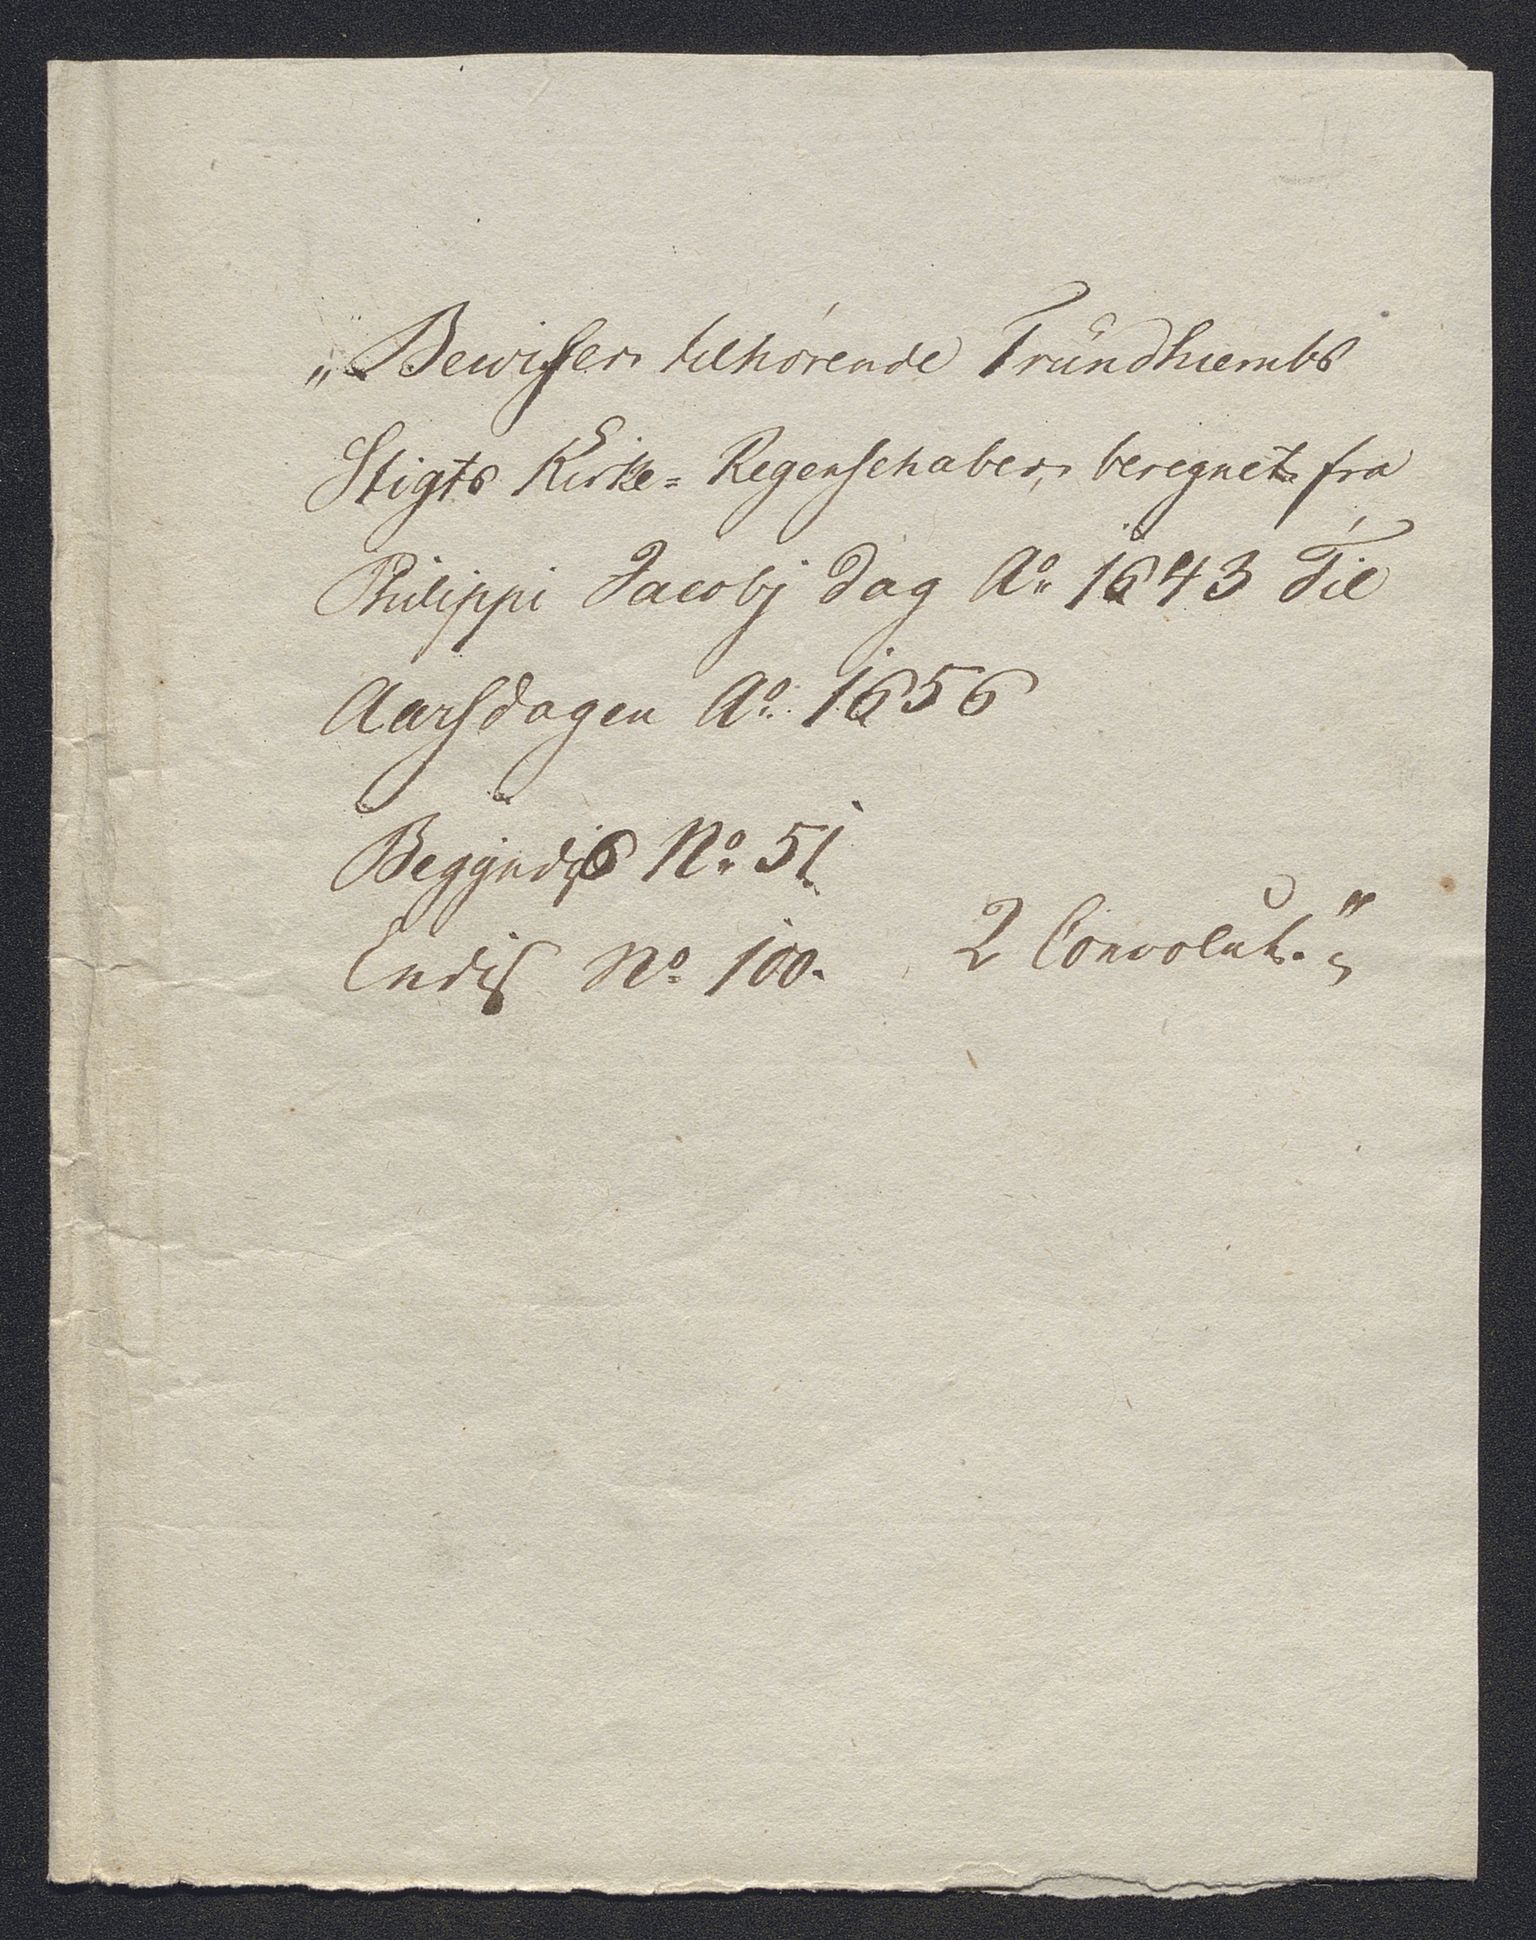 „Bewiser tilhørende Trŭndhiembs
Stigts Kirke= Regenschaber, beregnet fra
Philippi Jacobj Dag Aº 1643 Til
Aarsdagen Aº 1656
Begÿndis Nº 51
Endis Nº 100. 2 Convolut.“